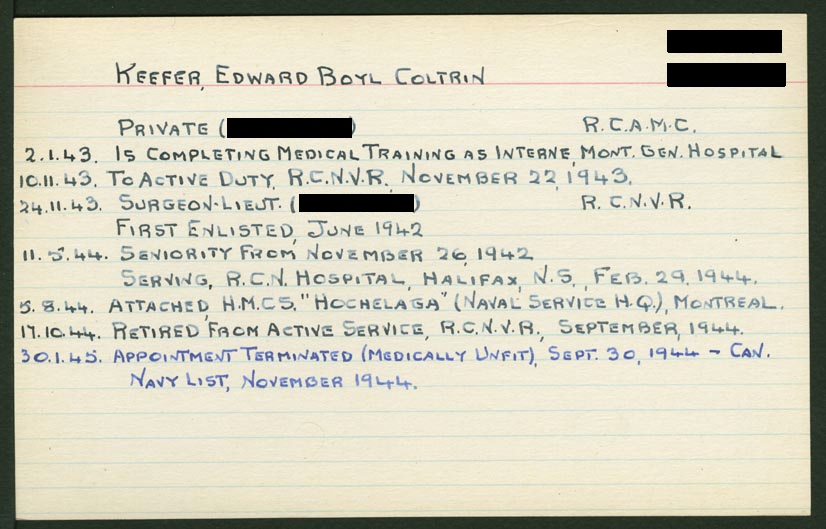 KEEFER, EDWARD BOYL COLTRIN
PRIVATE ( ) R.C.A.M.C.
2.1.43. IS COMPLETING MEDICAL TRAINING AS INTERNE, MONT. GEN. HOSPITAL
10.11.43. TO ACTIVE DUTY, R.C.N.V.R. NOVEMBER 22, 1943.
24.11.43. SURGEON-LIEUT. ( ) R.C.N.V.R.
FIRST ENLISTED, JUNE 1942
11.5.44. SENIORITY FROM NOVEMBER 26, 1942
SERVING, R.C.N. HOSPITAL, HALIFAX, N.S., FEB. 29, 1944.
5.8.44. ATTACHED, H.M.C.S. "HOCHELAGA" (NAVAL SERVICE H.Q.), MONTREAL.
17.10.44. RETIRED FROM ACTIVE SERVICE, R.C.N.V.R., SEPTEMBER, 1944.
30.1.45. APPOINTMENT TERMINATED (MEDICALLY UNFIT), SEPT. 30, 1944 - CAN.
NAVY LIST, NOVEMBER 1944.